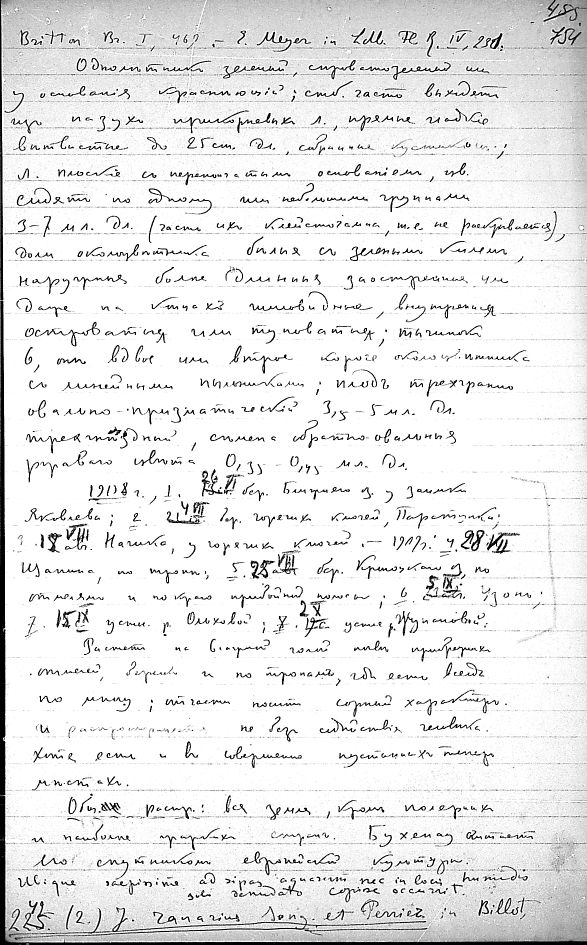 485
454
Britton Br. I, 469. – E. Meyer in Ldb. Fl. R. IV, 231.
Однолѣтникъ зеленый, сѣроватозеленый или
у основанiя краснѣющiй; стб. часто выходятъ
изъ пазухъ прикорневыхъ л., прямые гладкiе
вѣтвистые до 25 cm. дл., собранные кустиками;
л. плоскiе съ перепончатымъ основанiемъ, цв.
сидятъ по одному или небольшими группами
3–7 мл. дл. (часть ихъ клейстогамна, т.е. не раскрывается),
доли околоцвѣтника бѣлыя съ зеленымъ килемъ,
наружныя болѣе длинныя заостренныя или
даже на концахъ шиловидныя, внутреннiя
островатыя или туповатыя; тычинокъ
6, онѣ вдвое или втрое короче околоцвѣтника
съ линейными пыльниками; плодъ трехгранно
овально-призматическiй 3,5–5 мл. дл.
трехгнѣздный, сѣмена обратно-овальныя
ржаваго цвѣта 0,35–0,45 мл. дл.
1908 г., 1. 26 VI бер. Ближняго оз. у заимки
Яковлева; 2. 4 VII бер. горячихъ ключей, Паратунка;
3. 18 VIII Начика, у горячихъ ключей. – 1909 г. 4. 28 VII
Щапина, по тропѣ; 5. 25 VIII бер. Кроноцкаго оз. по
отмелямъ и по краю прибойной полосы; 6. 5 IX Узонъ;
7. 15 IX устье р. Ольховой; 8. 2 X устье р. Жупановой.
Растетъ на влажной голой почвѣ прибрежныхъ
отмелей, берега и по тропамъ, гдѣ есть вездѣ
по многу; отчасти носитъ сорный характеръ
и распространяется не безъ содѣйствiя человѣка.
хотя есть и въ совершенно пустынныхъ теперь
мѣстахъ.
Общ. распр.: вся земля, кромѣ полярныхъ
и наиболѣе жаркихъ странъ. Бухенау считаетъ
его спутникомъ европейской культуры.
Ubique saepissime ad ripas aquarum nec in locis humidis
solo denudato copiose occurrit.
225. (2.) J. ranarius Song. et Perrier in Billot,